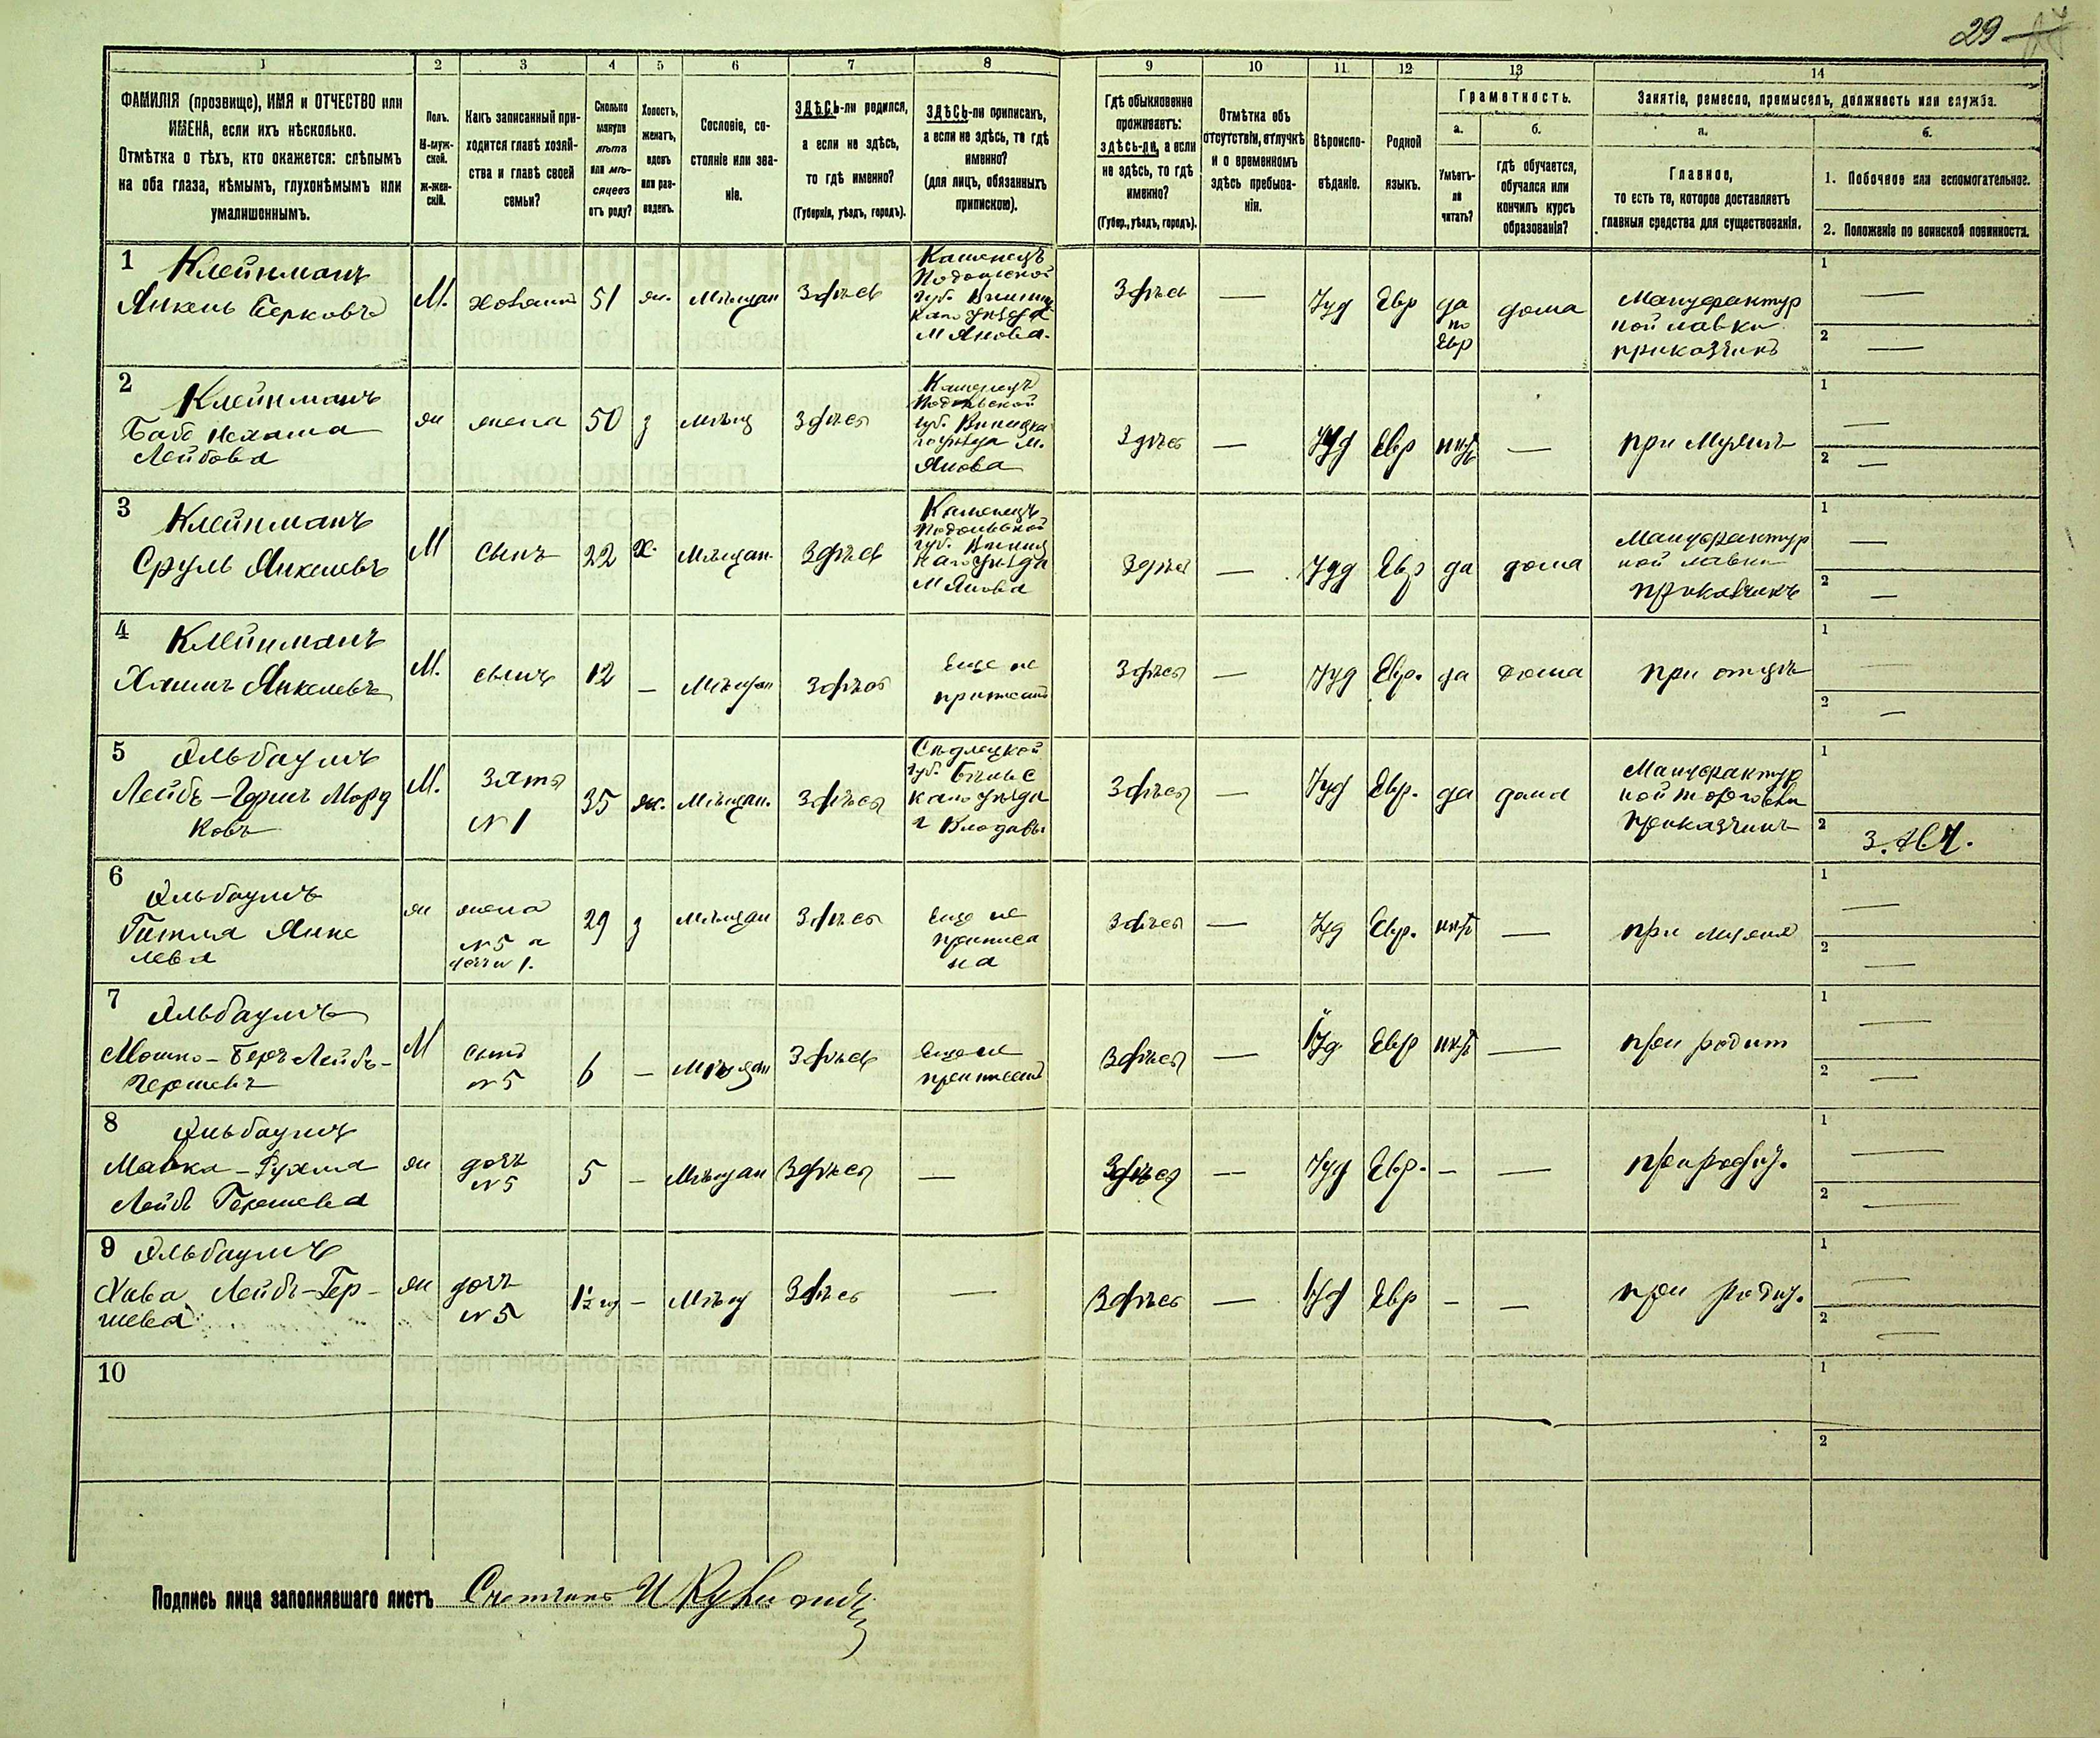 29
1
2
3
4
5
6
7
8
9
10
11
12
13
14
ФАМИЛІЯ (прозвище), ИМЯ и ОТЧЕСТВО или
ИМЕНА, если ихъ нѣсколько.
Отмѣтка о тѣхъ, кто окажется: слѣпымъ
на оба глаза, нѣмымъ, глухонѣмымъ или
умалишеннымъ.
Полъ.
М-муж-
ской.
Ж-жен-
скій.
Какъ записанный при-
ходится главѣ хозяй-
ства и главѣ своей
семьи?
Сколько
минуло
лѣтъ
или мѣ-
сяцевъ
отъ роду?
Холостъ,
женатъ,
вдовъ
или раз-
веденъ.
Сословіе, со-
стояніе или зва-
ніе.
ЗДѢСЬ-ли родился,
а если не здѣсь,
то гдѣ именно?
(Губернія, уѣздъ, городъ).
ЗДѢСЬ-ли приписанъ,
а если не здѣсь, то гдѣ
именно?
(для лицъ, обязанныхъ
припискою).
Гдѣ обыкновенно
проживаетъ:
здѣсь-ли, а если
не здѣсь, то гдѣ
именно?
(Губер., уѣздъ, городъ).
Отмѣтка объ
отсутствіи, отлучкѣ
и о временномъ
здѣсь пребыва-
ніи.
Вѣроиспо-
вѣданіе.
Родной
языкъ.
Грамотность.
а.
б.
Умѣетъ-
ли
читать?
гдѣ обучается,
обучался или
кончилъ курсъ
образованія?
Занятіе, ремесло, промыселъ, должность или служба.
а.
б.
Главное,
то есть то, которое доставляетъ
главныя средства для существованія.
1. Побочное или вспомогательное.
2. Положеніе по воинской повинности.
1
Клейнманъ
Янкель Берковъ
М.
хозяинъ
51
ж.
Мѣщан
Здѣсь
Каменецъ
Подольской
губ. Винниц
каго уѣзда
М Янова.
Здѣсь
—
Іуд
Евр
да
по
Евр
дома
Мануфактур
ной лавки
приказчикъ
1 —
2 —
2
Клейнманъ
Лейбова
ж
жена
50
з
мѣщ
Здѣсь
Каменецъ
Подольской
губ. Винницка
го уѣзда м.
Янова
Здѣсь
—
Іуд
Евр
нѣтъ
—
при Мужѣ
1 —
2 —
3
Клейнманъ
Сруль Янкелевъ
М
сынъ
22
х.
Мѣщан.
Здѣсь
Каменецъ
Подольской
губ. Винниц
каго уѣзда
М Янова
Здѣсь
—
Іуд
Евр
да
дома
Мануфактур
ной лавки
приказчикъ
1 —
2 —
4
Клейнманъ
Хаимъ Янкелевъ
М.
сынъ
12
—
Мѣщан
Здѣсь
Еще не
приписанъ
Здѣсь
—
Іуд
Евр.
да
дома
при отцѣ
1
2 —
5
Ольбаумъ
Лейбъ-Гершъ Морд
ковъ
М.
Зять
№ 1
35
ж.
Мѣщан.
Здѣсь
Сѣдлецкой
губ. Бѣльс
каго уѣзда
г Влодавы
Здѣсь
—
Іуд
Евр.
да
дома
Мануфактур
ной торговли
приказчикъ
1
2
6
Ольбаумъ
Гитля Янке
лева
ж
жена
№ 5 и
дочь № 1.
29
з
мѣщан
Здѣсь
Еще не
приписа
на
Здѣсь
—
Іуд
Евр.
нѣтъ
—
при мужѣ
1 —
2 —
7
Ольбаумъ
Мошко-Беръ Лейбъ-
Гершевъ
М
сынъ
№ 5
6
—
Мѣщан
Здѣсь
Еще не
приписанъ
Здѣсь
—
Іуд.
Евр
нѣтъ
—
при родит
1 —
2 —
8
Ольбаумъ
Малка-Рухля
Лейбъ Гершева
ж
дочь
№ 5
5
—
Мѣщан
Здѣсь
—
Здѣсь
—
Іуд
Евр.
—
—
при родит.
1 —
2 —
9
Ольбаумъ
Хава Лейбъ-Гер-
шева
ж
дочь
№ 5
1½ г
—
Мѣщ
Здѣсь
—
Здѣсь
—
Іуд
Евр
—
—
при родит.
1 —
2 —
10
1
2
Подпись лица заполнявшаго листъ Счетчикъ И